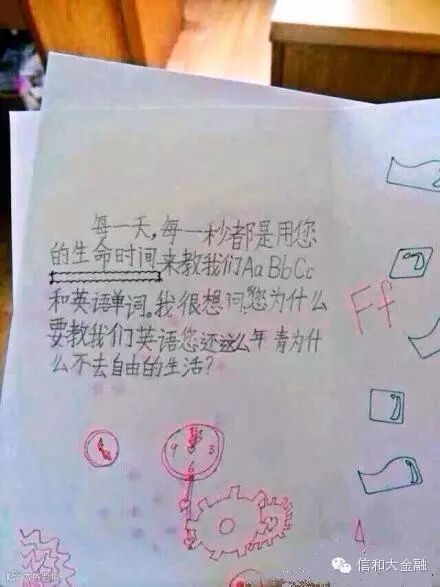 每一天,每一秒都是用您
的生命时间来教我们AaBbCc
和英语单词。我很想问,您为什么
要教我们英语您还这么年青为什
么不去自由的生活?
Ff
12
9 3
6
信和大金融